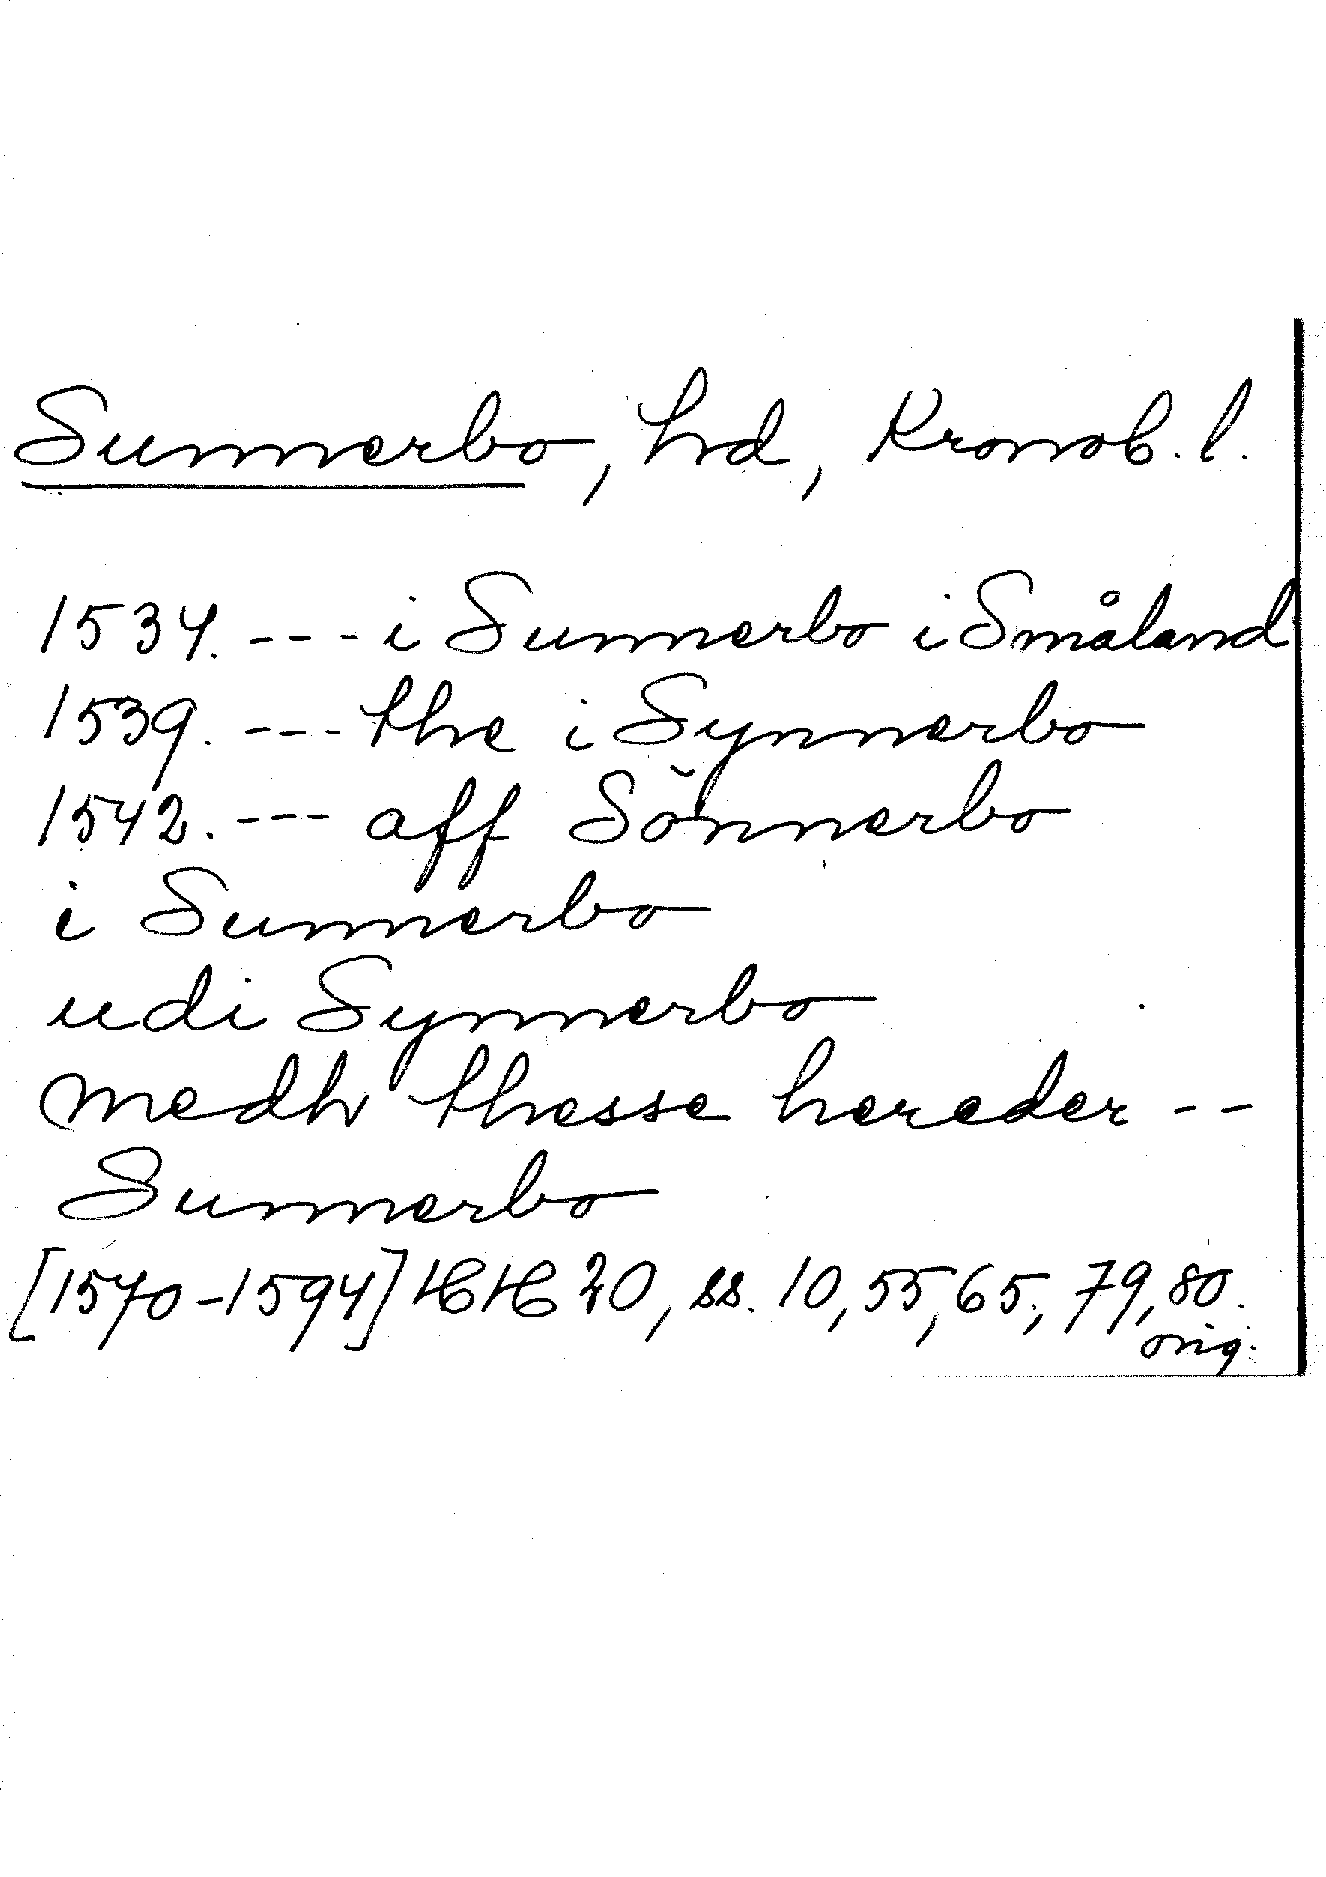 Sunnerbo, hd, Kronob. l.
1534. --- i Sunnerbo i Småland
1539. --- the i Synnerbo
1542. --- aff Sönnerbo
i Sunnerbo
udi Synnerbo
medh thesse hereder --
Sunnerbo
[1570-1594] HH 20, ss. 10, 55, 65, 79, 80.
orig.